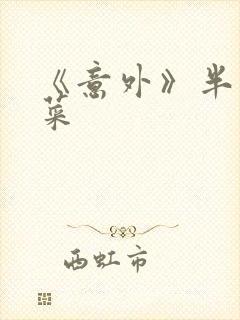 《意外》半
菜
西虹市